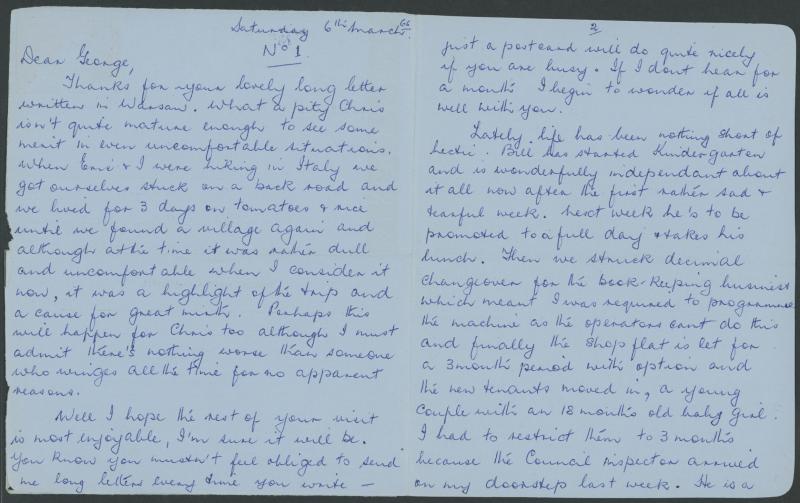 Saturday 6th March 66
No 1.
Dear George,
Thanks for your lovely long letter
written in Warsaw. What a pity Chris
isn't quite mature enough to see some
merit in even uncomfortable situations.
When Eric & I were hiking in Italy we
got ourselves stuck on a back road and
we lived for 3 days on tomatoes & rice
until we found a village again and
although at the time it was rather dull
and uncomfortable when I consider it
now, it was a highlight of the trip and
a cause for great mirth. Perhaps this
will happen for Chris too although I must
admit there's nothing worse than someone
who winges all the time for no apparent
reasons.
Well I hope the rest of your visit
is most enjoyable, I'm sure it will be.
You know you mustn't feel obliged to send
me long letters every time you write —
2
just a postcard will do quite nicely
if you are busy. If I dont hear for
a month I begin to wonder if all is
well with you.
Lately life has been nothing short of
hectic. Bill has started Kindergarten
and is wonderfully independant about
it all now after the first rather sad &
tearful week. Next week he's to be
promoted to a full day & takes his
lunch. Then we struck decimal
changeover for the book-keeping business
which meant I was required to programme
the machine as the operators cant do this
and finally the shop flat is let for
a 3 month period with option and
the new tenants moved in, a young
couple with an 18 months old baby girl.
I had to restrict them to 3 months
because the Council inspector arrived
on my doorstep last week. He is a